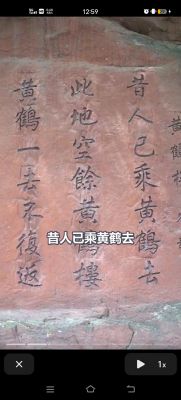 12:59
昔人已乘黃鶴去
此地空餘黃鶴樓
黃鶴一去不復返
黃鶴樓
昔人已乘黄鹤去
1x